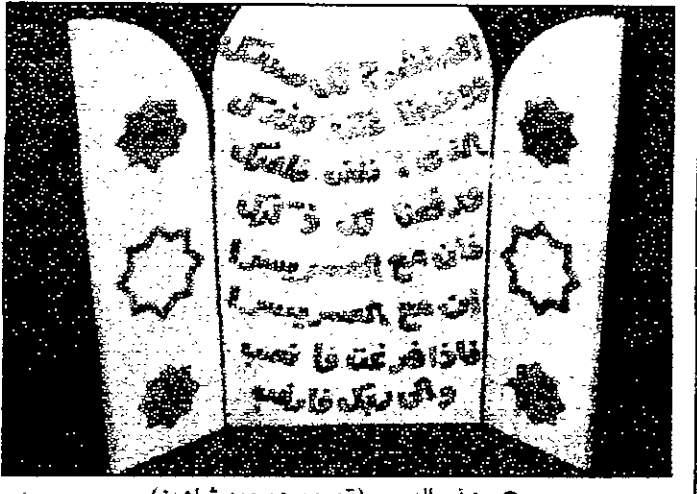 الم نشرح لك صدرك
ووضعنا عنك وزرك
الذى انقض ظهرك
ورفعنا لك ذكرك
فان مع العسر يسرا
ان مع العسر يسرا
فاذا فرغت فا نصب
والى ربك فارغب